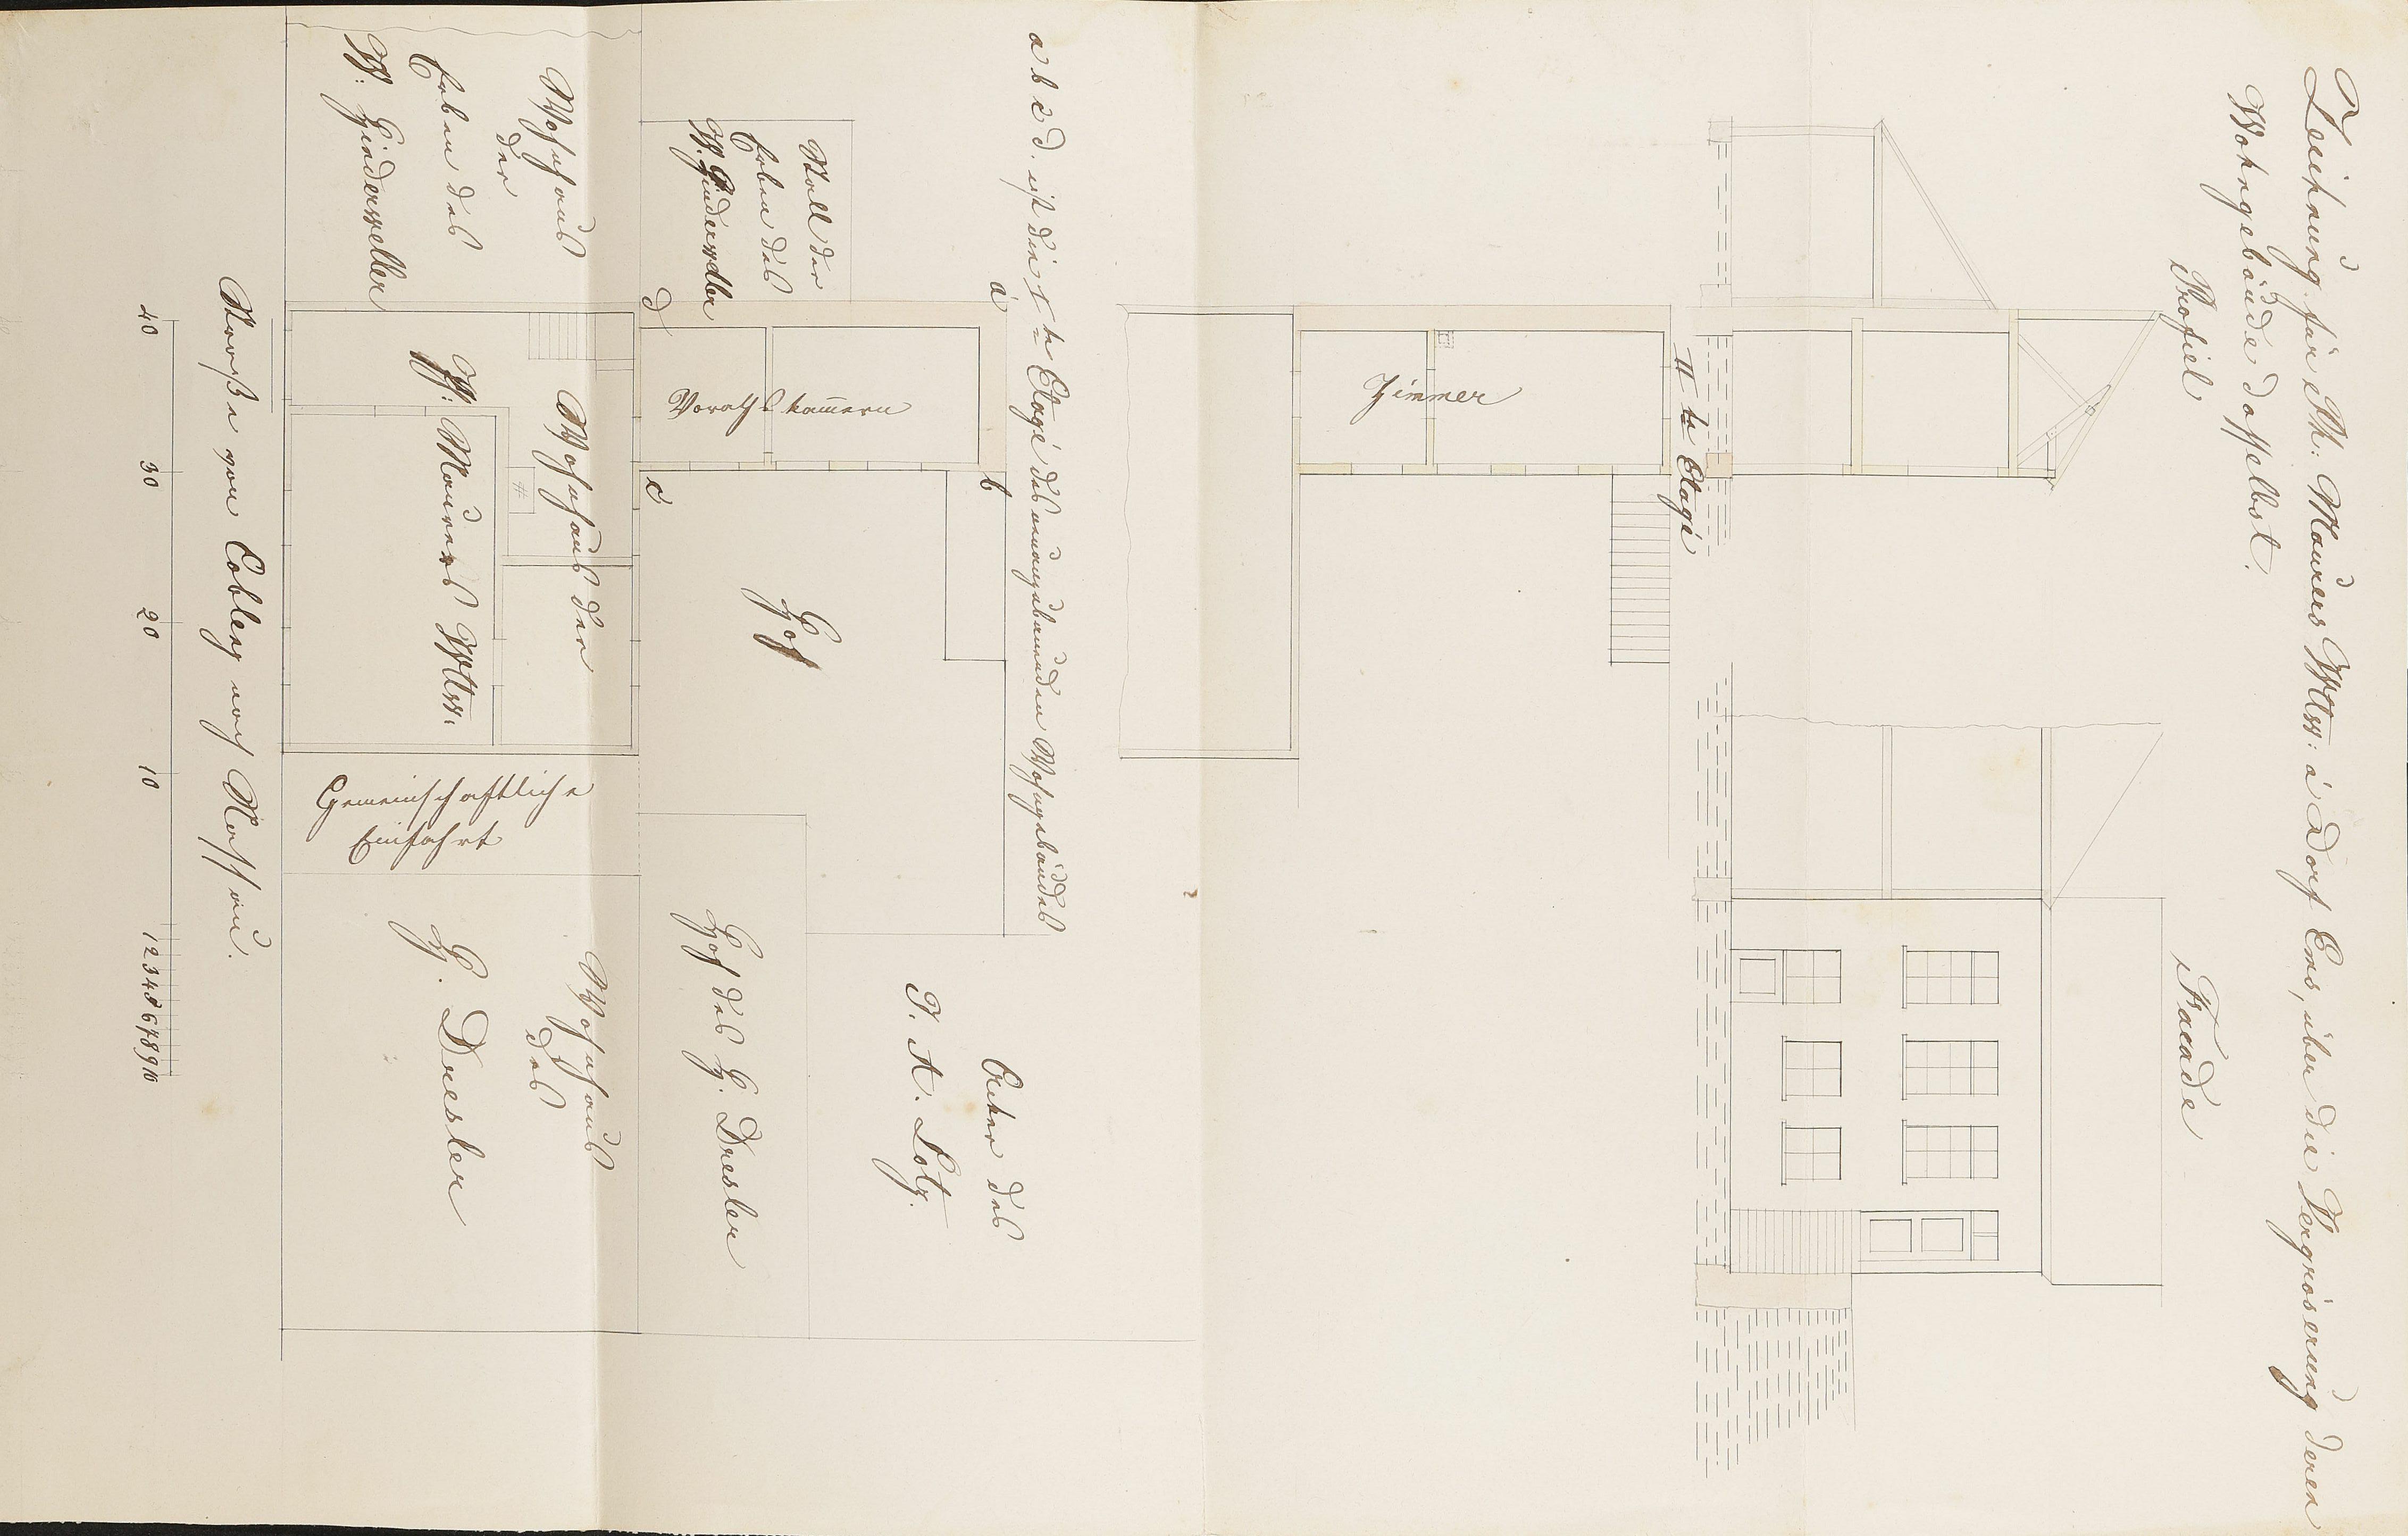 Zeichnung für Ph: Maurers Wttw: à Dorf Ems, über die Vergröserung deren
Wohngebäude daselbst.
Profiel
Facade
II te Etagé
Zimmer
a b c d. ist die 1 te Etagé des neuanzubauenden Wohngebäudes
a
b
c
d
Stall der
Erben des
W.
Vorathskamern
Hof
Acker des
J. A. Lotz.
Hof des H. Dresler
Wohnhaus
der
Erben des
W:
Wohnhaus der
W: Maurers Wttw:
Gemeinschaftliche
Einfahrt
Wohnhaus
des
H. Dresler
Strasse von Coblenz nach Nassau.
40 30 20 10 1 2 3 4 5 6 7 8 9 10